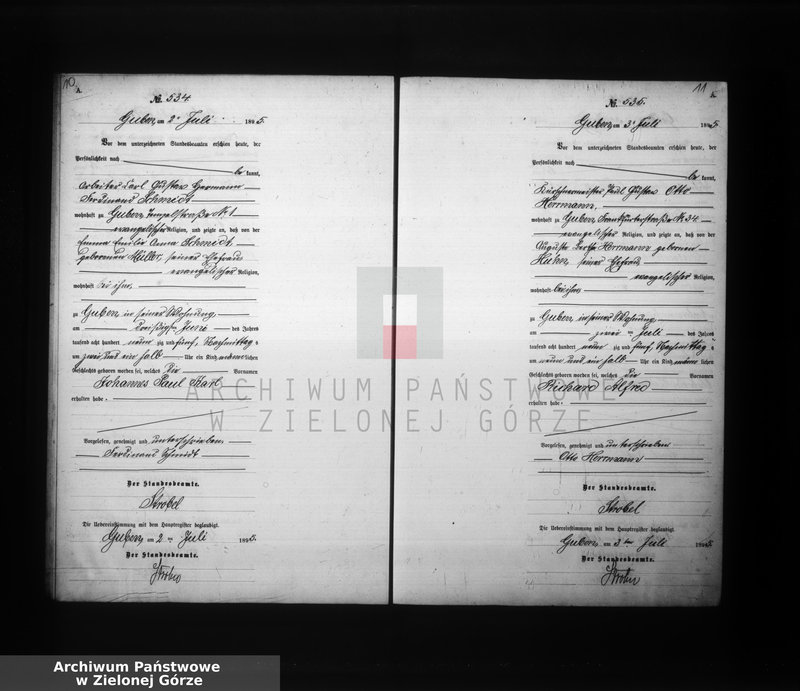 10
A.
№ 534.
Guben, am 2n Juli 1895.
Vor dem unterzeichneten Standesbeamten erschien heute, der
Persönlichkeit nach
be kannt,
Arbeiter Carl Gustav Hermann
Ferdinand Schmidt
wohnhaft zu Guben, Tempelstraße № 1
evangelischer Religion, und zeigte an, daß von der
Emma Emilie Anna Schmidt
geborenen Müller, seiner Ehefrau
evangelischer Religion,
wohnhaft bei ihm,
zu Guben, in seiner Wohnung
am dreißigsten Juni des Jahres
tausend acht hundert neun zig und fünf, Nachmittag s
um zwei und ein halb Uhr ein Kind männ lichen
Geschlechts geboren worden sei, welches die Vornamen
Johannes Paul Karl
erhalten habe.
Vorgelesen, genehmigt und unterschrieben
Ferdinand Schmidt
Der Standesbeamte.
Strobel
Die Uebereinstimmung mit dem Hauptregister beglaubigt.
Guben am 2ten Juli 1895.
Der Standesbeamte.
11
A.
№ 535.
Guben, am 3n Juli 1895
Vor dem unterzeichneten Standesbeamten erschien heute, der
Persönlichkeit nach
be kannt,
Kürschnermeister Paul Gustav Otto
Herrmann,
wohnhaft zu Guben, Frankfurterstraße № 34
evangelischer Religion, und zeigte an, daß von der
Auguste Bertha Herrmann geborenen
Huhn, seiner Ehefrau
evangelischer Religion,
wohnhaft bei ihm,
zu Guben, in seiner Wohnung
am zwei ten Juli des Jahres
tausend acht hundert neun zig und fünf, Nachmittag s
um neun und ein halb Uhr ein Kind männ lichen
Geschlechts geboren worden sei, welches die Vornamen
Richard Alfred
erhalten habe.
Vorgelesen, genehmigt und unterschrieben
Otto Herrmann
Der Standesbeamte.
Strobel
Die Uebereinstimmung mit dem Hauptregister beglaubigt.
Guben, am 3ten Juli 1895.
Der Standesbeamte.
ARCHIWUM PAŃSTWOWE
W ZIELONEJ GÓRZE
Archiwum Państwowe
w Zielonej Górze